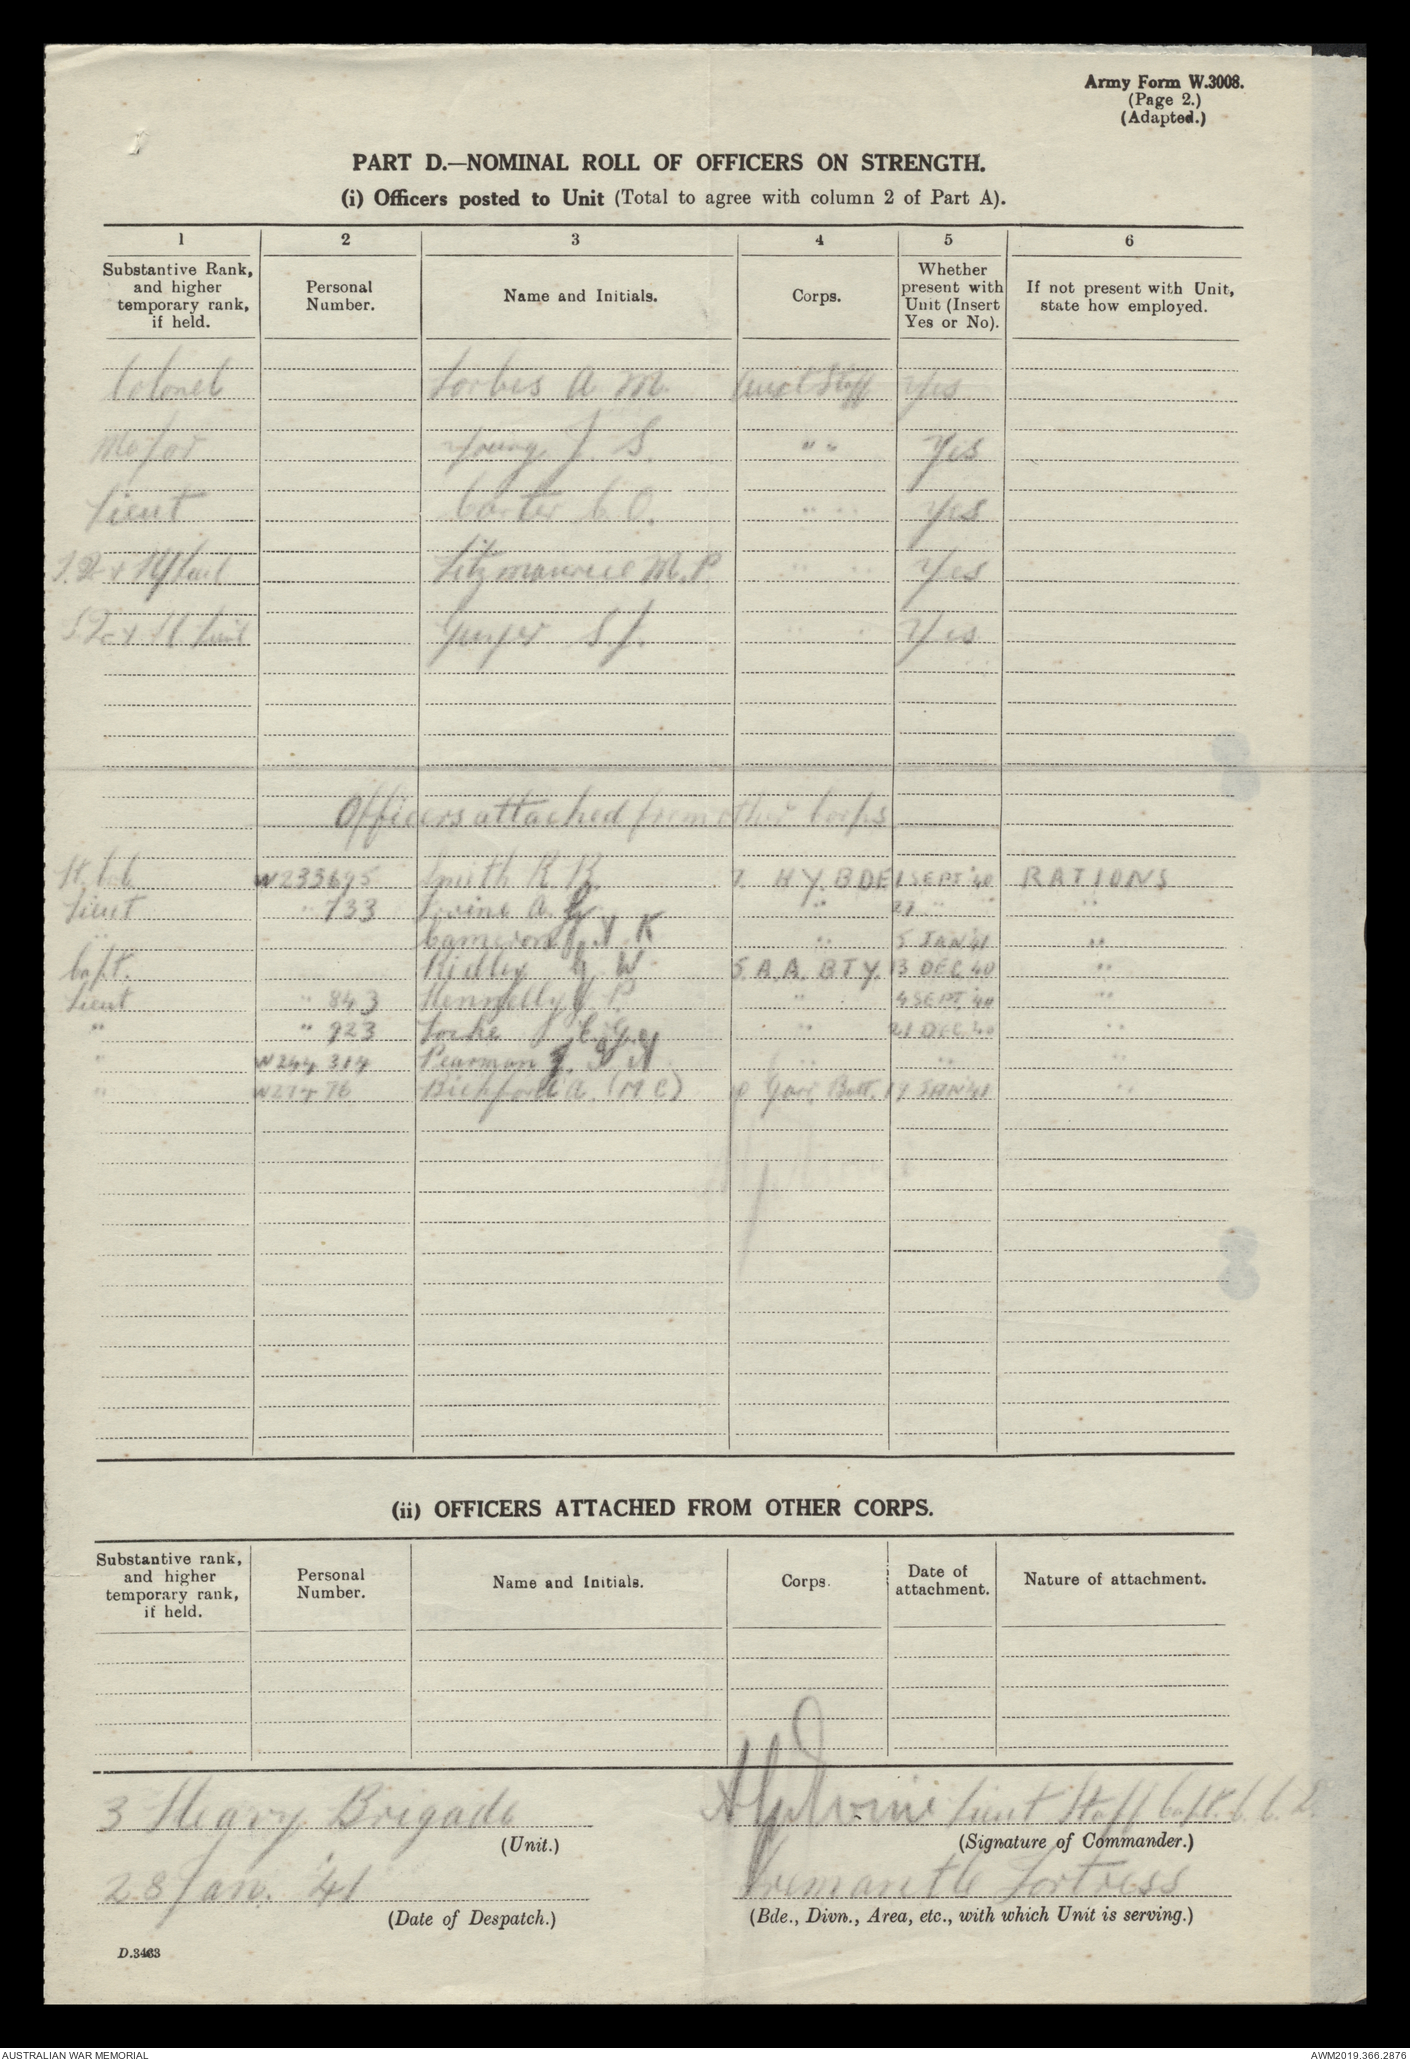 Army Form W.3008.
(Page 2.)
(Adapted.)
PART D.—NOMINAL ROLL OF OFFICERS ON STRENGTH.
(i) Officers posted to Unit (Total to agree with column 2 of Part A).
1 2 3 4 5 6
Substantive Rank, and higher temporary rank, if held. Personal Number. Name and Initials. Corps. Whether present with Unit (Insert Yes or No). If not present with Unit, state how employed.
Colonel Forbes A M. Staff Yes
Major Young J. S. " " Yes
Lieut Carter C. O. " " Yes
Fitzmaurice M. P. " " Yes
S J. " " Yes
Officers attached from other Corps
Lt. Col W233695 Smith R. K. 7. HY. BDE 1 SEPT '40 RATIONS
Lieut " 733 Irvine A. G. " 27 " " "
" Cameron J. K " 5 JAN 41 "
Capt. Ridley G W. 5. A. A. BTY. 13 DEC 40 "
Lieut " 843 Hennelly J. P " 4 SEPT '40 "
" " 923 Locke J. E. G. " 21 DEC. 40 "
" W244 314 Pearman " " "
" Bickford A. (M C) 10 Garr. Batt. 14 JAN '41 "
(ii) OFFICERS ATTACHED FROM OTHER CORPS.
Substantive rank, and higher temporary rank, if held. Personal Number. Name and Initials. Corps. Date of attachment. Nature of attachment.
3 Heavy Brigade
(Unit.)
A G Irvine Lieut Staff Capt.
(Signature of Commander.)
28 Jan. '41
(Date of Despatch.)
Fremantle Fortress
(Bde., Divn., Area, etc., with which Unit is serving.)
D.3463
AUSTRALIAN WAR MEMORIAL
AWM2019.366.2876